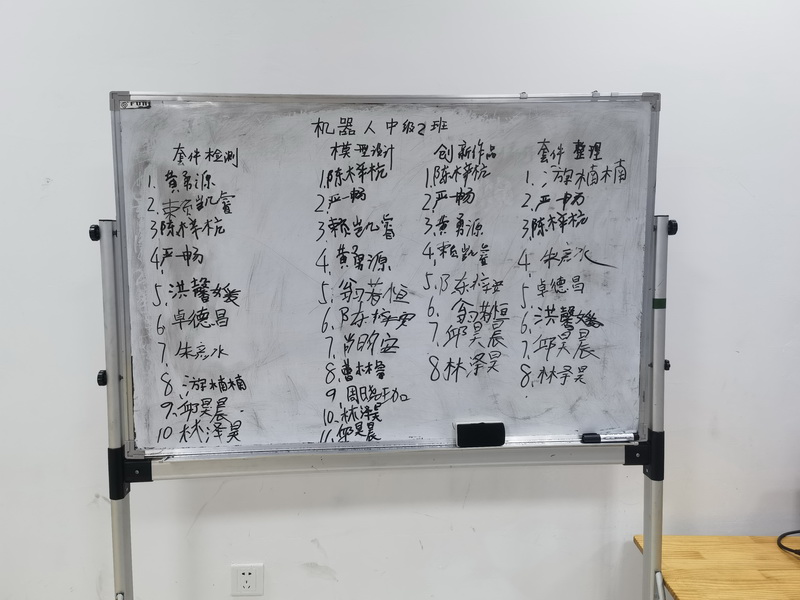 机器人中级2班
套件检测
1. 黄勇源
2. 赖凯睿
3. 陈梓杭
4. 严畅
5. 洪馨媛
6. 卓德昌
7. 朱彦冰
8. 游楠楠
9. 邱昊晨
10 林泽昊
模型设计
1. 陈梓杭
2. 严畅
3. 赖凯睿
4. 黄勇源
5. 翁若恒
6. 陈梓安
7. 肖昀安
8. 曹林睿
9. 周
10. 林泽昊
11. 邱昊晨
创新作品
1. 陈梓杭
2. 严畅
3. 黄勇源
4. 赖凯睿
5. 陈梓安
6. 翁若恒
7. 邱昊晨
8 林泽昊
套件整理
1. 游楠楠
2. 严畅
3. 陈梓杭
4. 朱彦冰
5. 卓德昌
6. 洪馨媛
7. 邱昊晨
8. 林泽昊